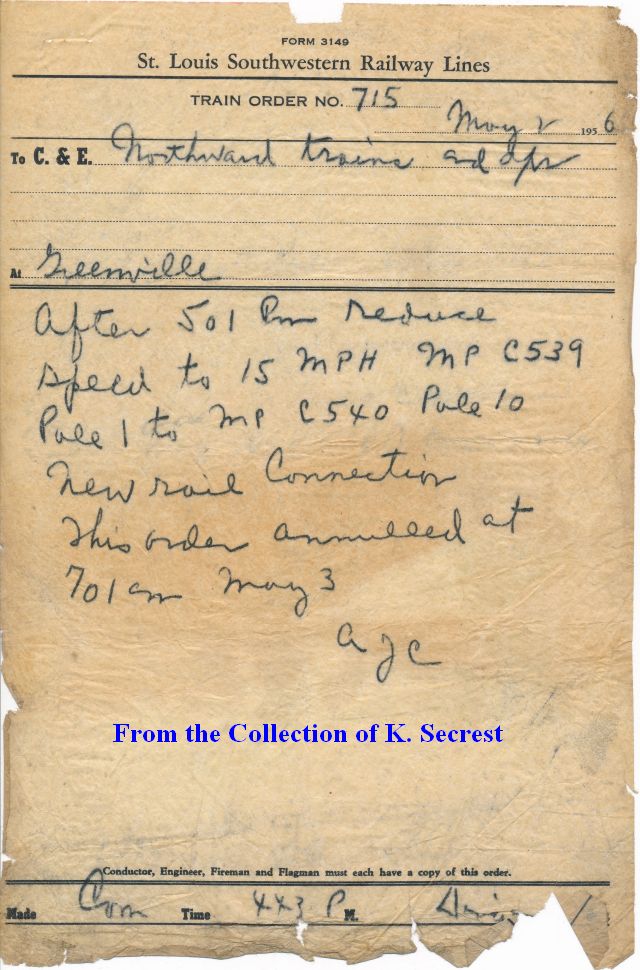 FORM 3149
St. Louis Southwestern Railway Lines
TRAIN ORDER NO. 715
May 2 1956
To C. & E. Northward trains and opr
At Greenville
After 501 Pm reduce
speed to 15 MPH MP C539
Pole 1 to MP C540 Pole 10
New rail Connection
This order annulled at
701 am May 3
A J C
From the Collection of K. Secrest
Conductor, Engineer, Fireman and Flagman must each have a copy of this order.
Made Com Time 443 P M.